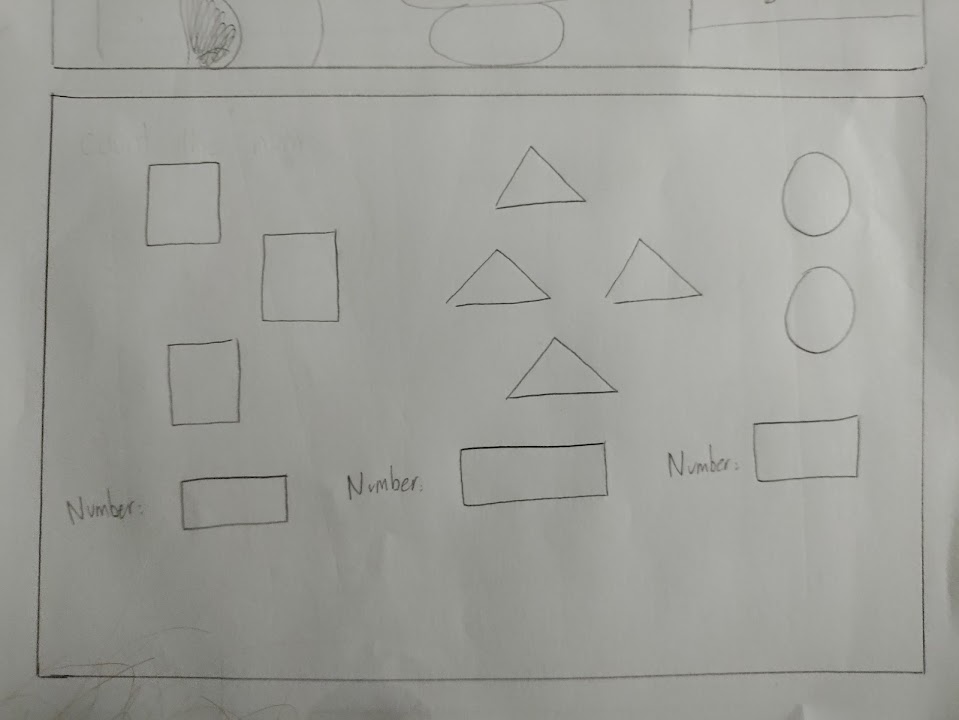 Count the num
Number:
Number:
Number: